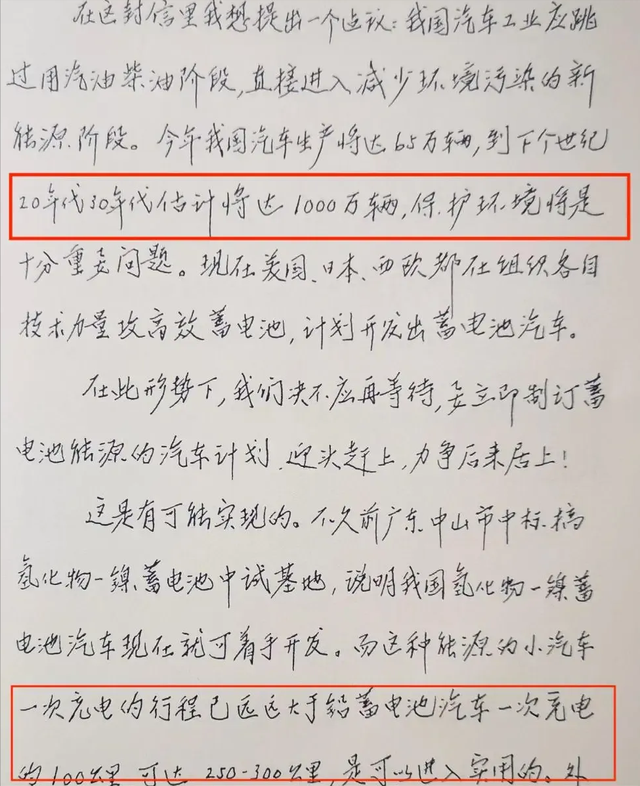 在这封信里我想提出一个点议：我国汽车工业应跳
过用汽油柴油阶段，直接进入减少环境污染的新
能源阶段。今年我国汽车生产将达65万辆，到下个世纪
20年代30年代估计将达1000万辆，保护环境将是
十分重要问题。现在美国、日本、西欧都在组织各自
技术力量攻高效蓄电池，计划开发出蓄电池汽车。
在此形势下，我们决不应再等待，要立即制订蓄
电池能源的汽车计划，迎头赶上，力争后来居上！
这是有可能实现的。不久前广东中山市中标搞
氢化物—镍蓄电池中试基地，说明我国氢化物—镍蓄
电池汽车现在就可着手开发。而这种能源的小汽车
一次充电的行程已远远大于铅蓄电池汽车一次充电
的100公里，可达250-300公里，是可以进入实用的。外